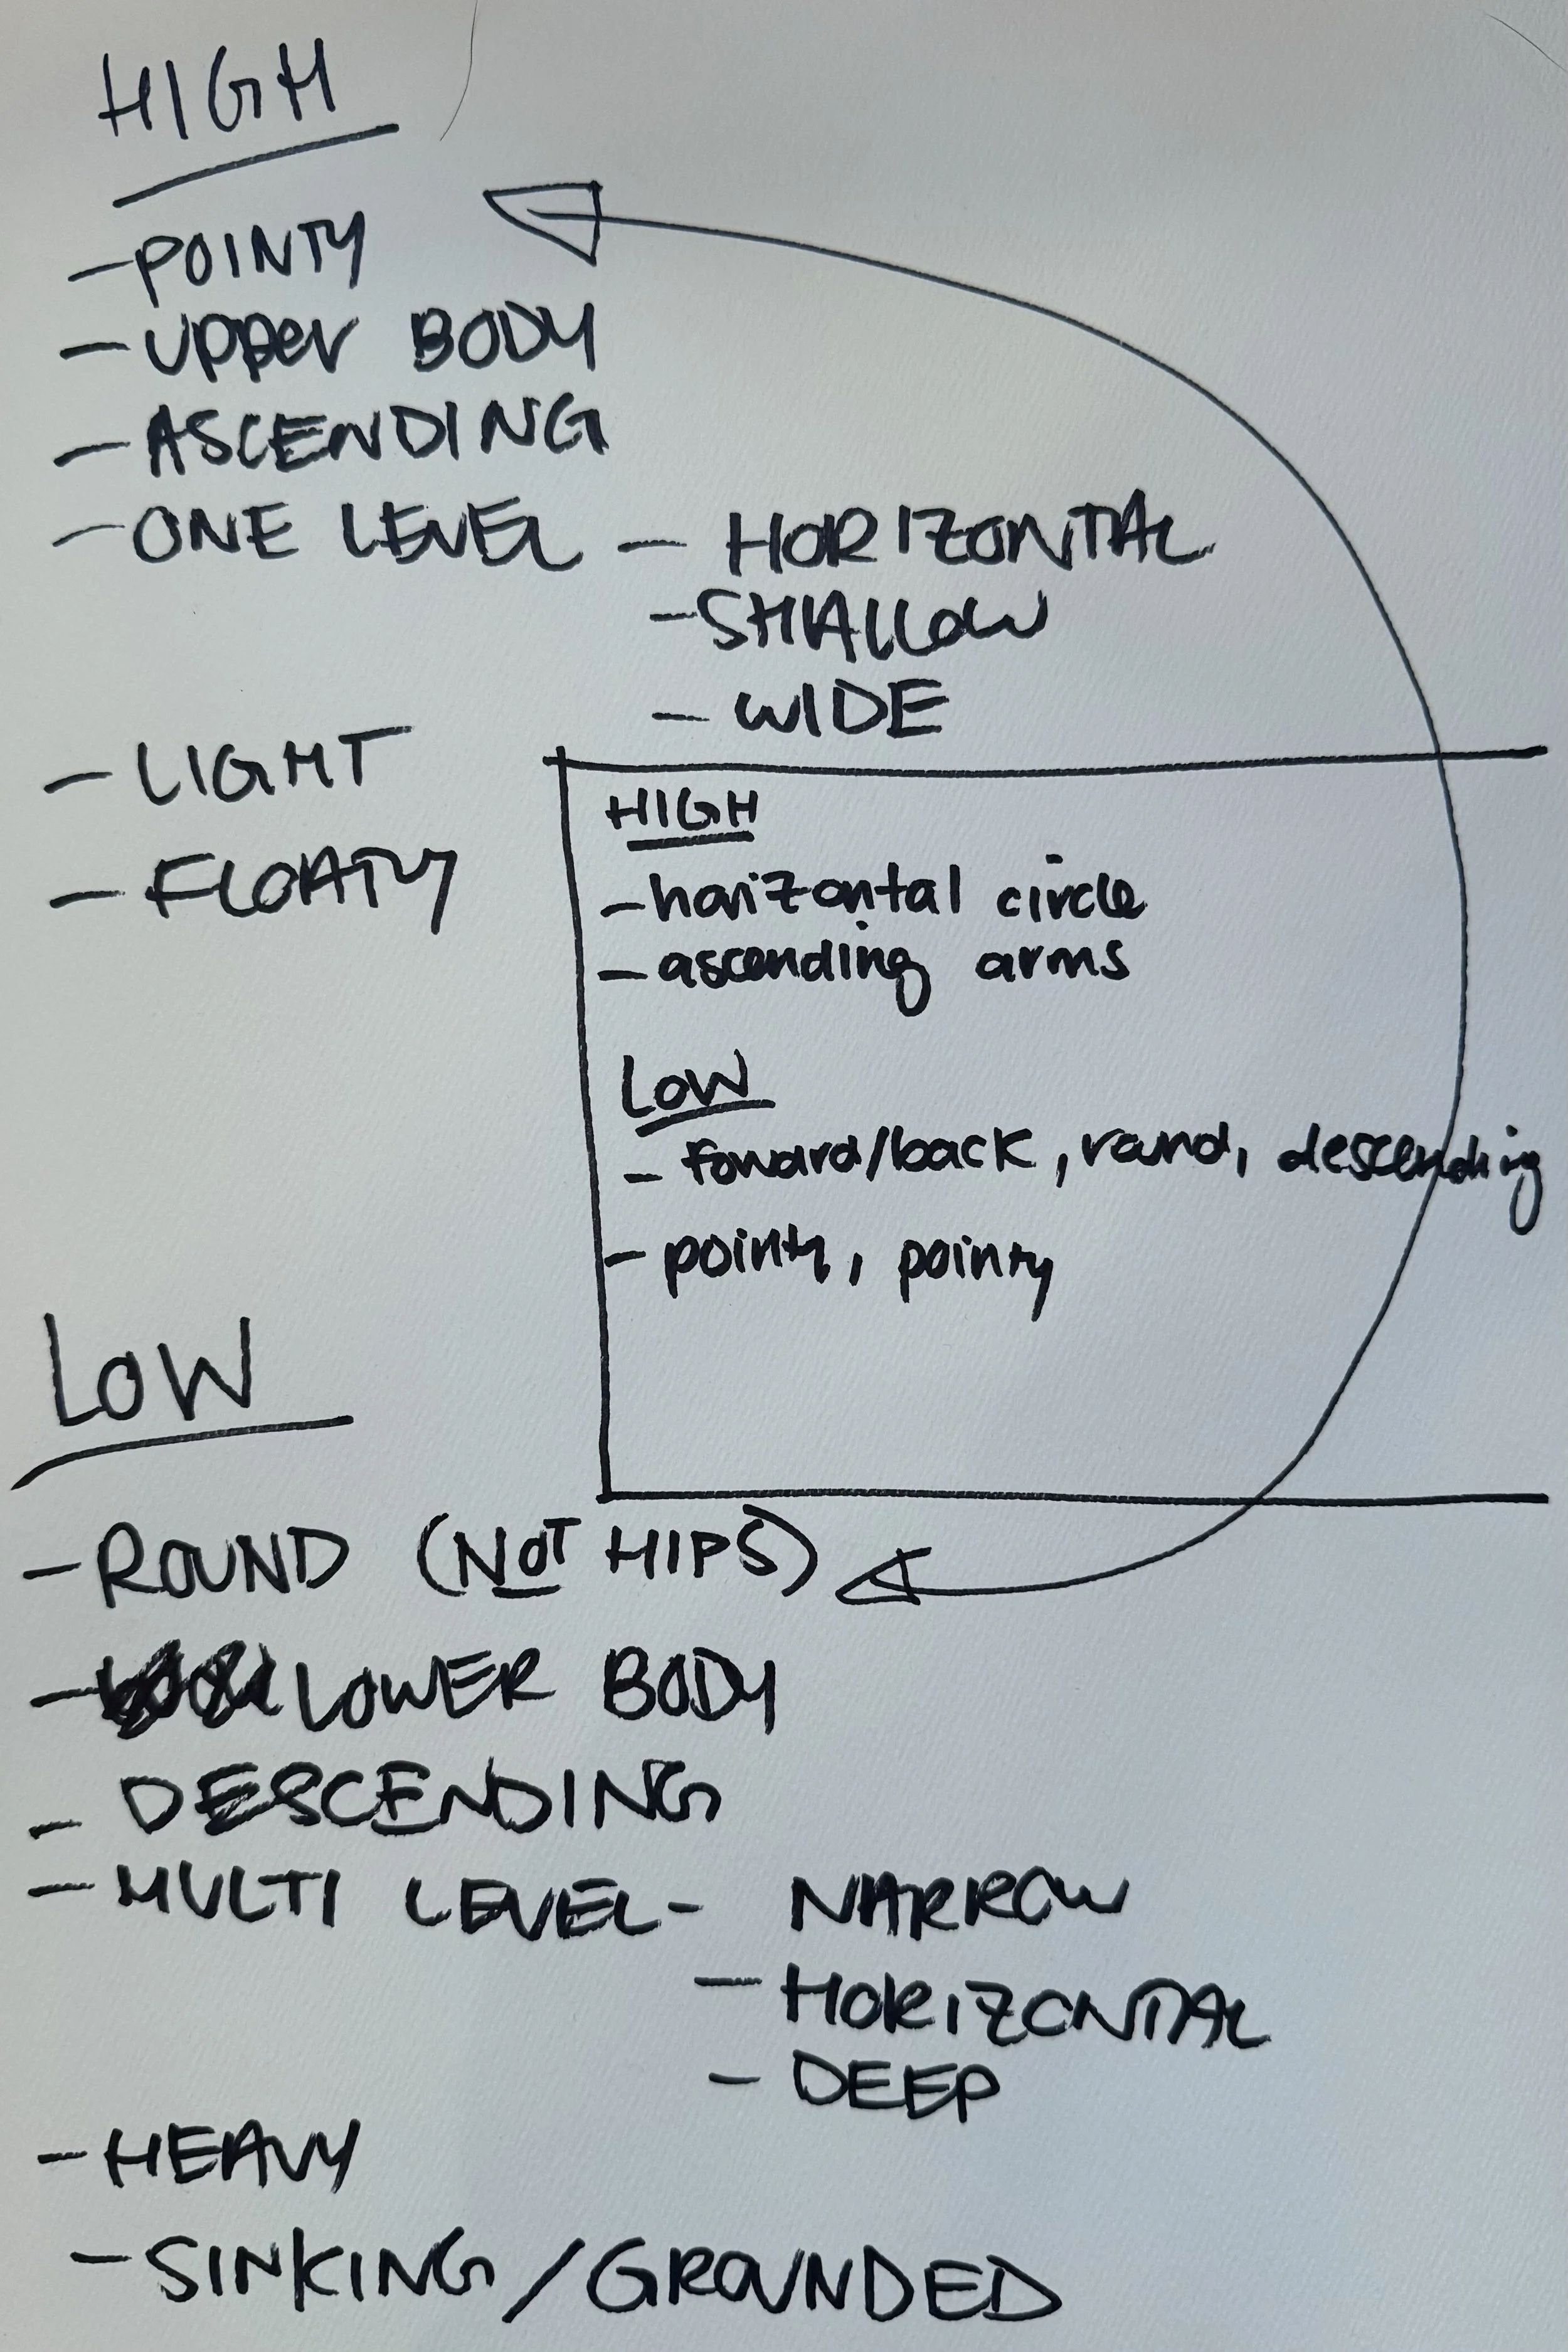 HIGH
- POINTY
- UPPER BODY
- ASCENDING
- ONE LEVEL - HORIZONTAL
- SHALLOW
- WIDE
- LIGHT
- FLOATY
HIGH
- horizontal circle
- ascending arms
LOW
- foward/back, round, descending
- pointy, pointy
LOW
- ROUND (NOT HIPS)
- LOWER BODY
- DESCENDING
- MULTI LEVEL - NARROW
- HORIZONTAL
- DEEP
- HEAVY
- SINKING/GROUNDED